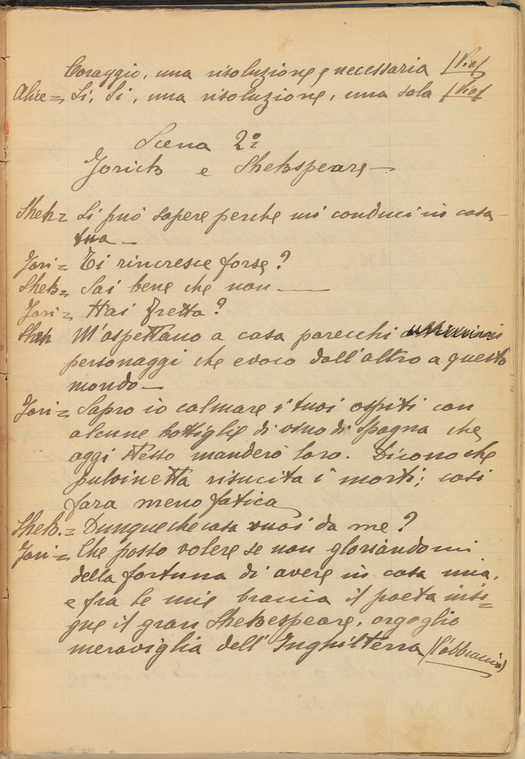 Coraggio, una risoluzione e necessaria (Via)
Alice = Si, Si, una risoluzione, una sola (Via)
Scena 2°
Jorick e Shekspeare
Shek = Si può sapere perche mi conduci in casa
tua
Jori = Ti rincresce forse?
Shek = Sai bene che non
Jori = Hai fretta?
Shek M'aspettano a casa parecchi
personaggi che evoco dall'altro a questo
mondo
Jori = Sapro io calmare i tuoi ospiti con
alcune bottiglie di vino di Spagna che
oggi stesso manderò loro. Dicono che
risucita i morti; cosi
fara meno fatica
Shek. = Dunque che cosa vuoi da me?
Jori = Che posso volere se non gloriandomi
della fortuna di avere in casa mia,
e fra le mie braccia il poeta insi=
gne il gran Shekespeare, orgoglio
meraviglia dell'Inghilterra (l'abbraccia)